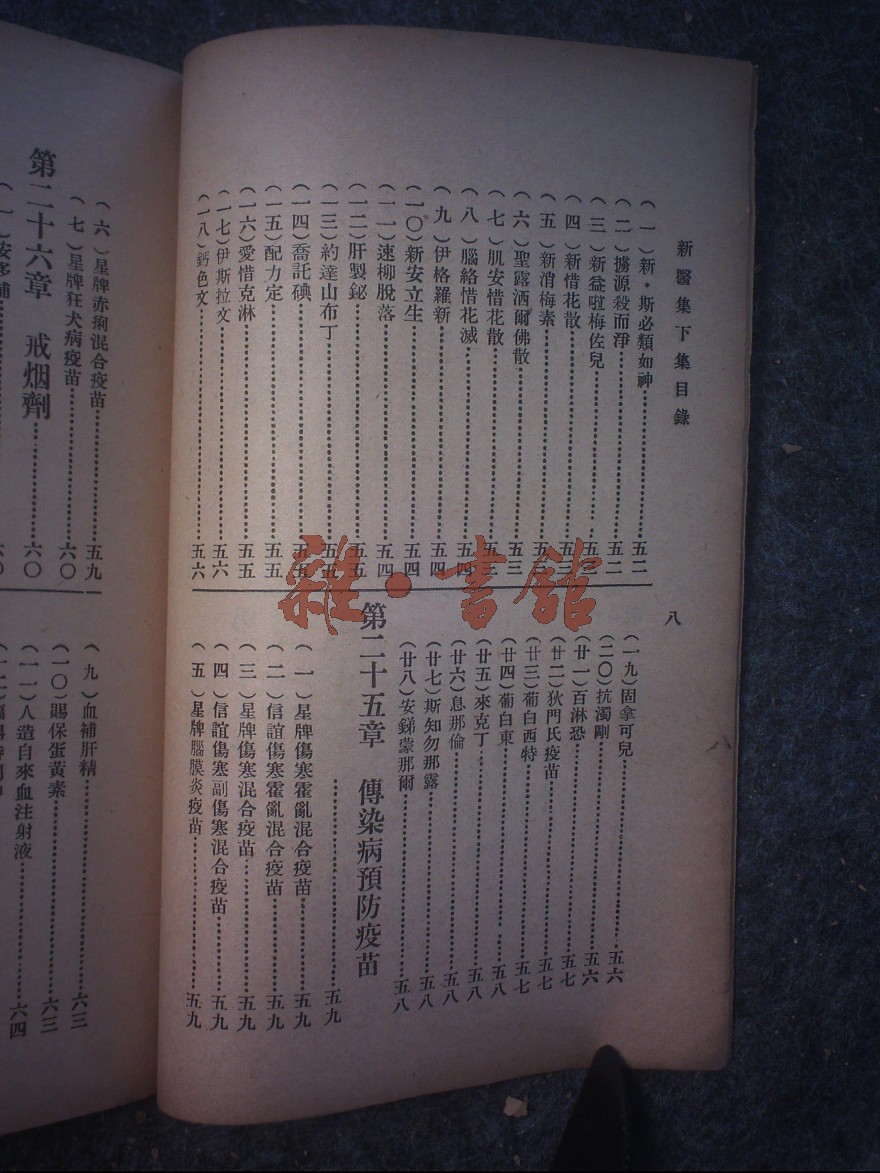 新醫集下集目錄
八
（一）新·斯必類如神……五二
（二）擄源殺而淨……五二
（三）新益啶梅佐兒……五二
（四）新惜花散……五三
（五）新消梅素……五三
（六）聖露洒爾佛散……五三
（七）肌安惜花散……五三
（八）腦絡惜花滅……五四
（九）伊格羅新……五四
（一〇）新安立生……五四
（一一）速柳脫落……五四
（一二）肝製鉍……五五
（一三）約達山布丁……五五
（一四）喬託碘……五五
（一五）配力定……五五
（一六）愛惜克淋……五五
（一七）伊斯拉文……五六
（一八）鈣色文……五六
（一九）固拿可兒……五六
（二〇）抗濁剛……五六
（廿一）百淋恐……五七
（廿二）狄門氏疫苗……五七
（廿三）葡白西特……五七
（廿四）葡白東……五八
（廿五）來克丁……五八
（廿六）息那倫……五八
（廿七）斯知勿那露……五八
（廿八）安銻蒙那爾……五八
第二十五章　傳染病預防疫苗
……五九
（一）星牌傷寒霍亂混合疫苗……五九
（二）信誼傷寒霍亂混合疫苗……五九
（三）星牌傷寒混合疫苗……五九
（四）信誼傷寒副傷寒混合疫苗……五九
（五）星牌腦膜炎疫苗……五九
（六）星牌赤痢混合疫苗……五九
（七）星牌狂犬病疫苗……六〇
第二十六章　戒烟劑……六〇
（一）安多
六〇
（九）血補肝精……六三
（一〇）賜保蛋黃素……六三
（一一）人造自來血注射液……六四
雜·書館